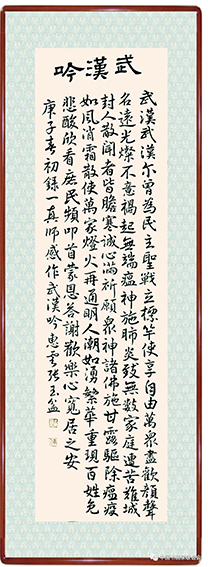 武漢吟
武漢武漢尔曾為民主聖戰立標竿使享自由萬衆盡歡顏聲
名遠光燦不意禍起無端瘟神施肺炎致無數家庭遭苦難城
封人散聞者皆膽寒誠心滿祈願眾神諸佛施甘露驅除瘟疫
如風消霜散使萬家燈火再通明人潮如湧繁華重現百姓免
悲酸欣看庶民頻叩首蒙恩答謝歡樂心寬居之安
庚子春初錄一真師感作武漢吟惠雲張玉盆